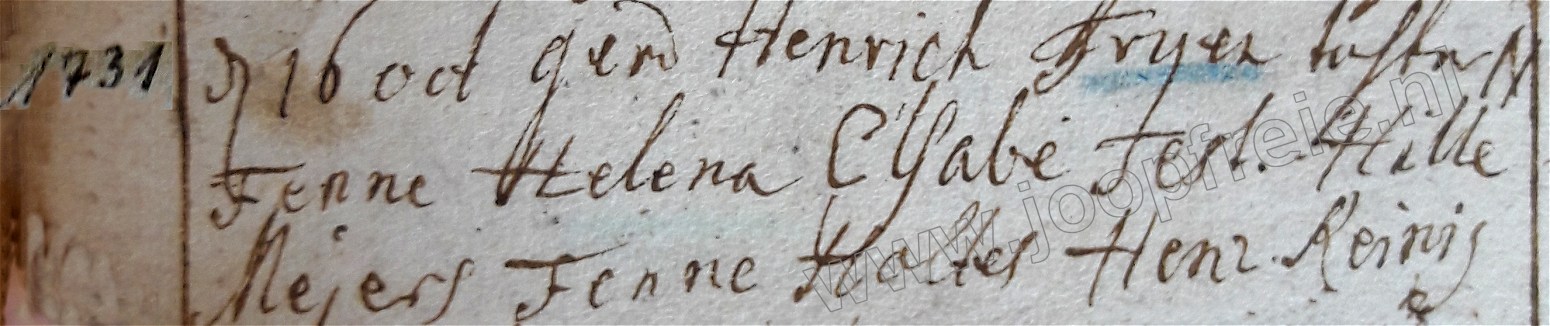 1731 D 16 oct gerd Henrich Fryer tochter N
Fenne Helena Elsabe Test. Hille
Mejers Fenne Holtes Henr. Reinig
www.joopfreie.nl